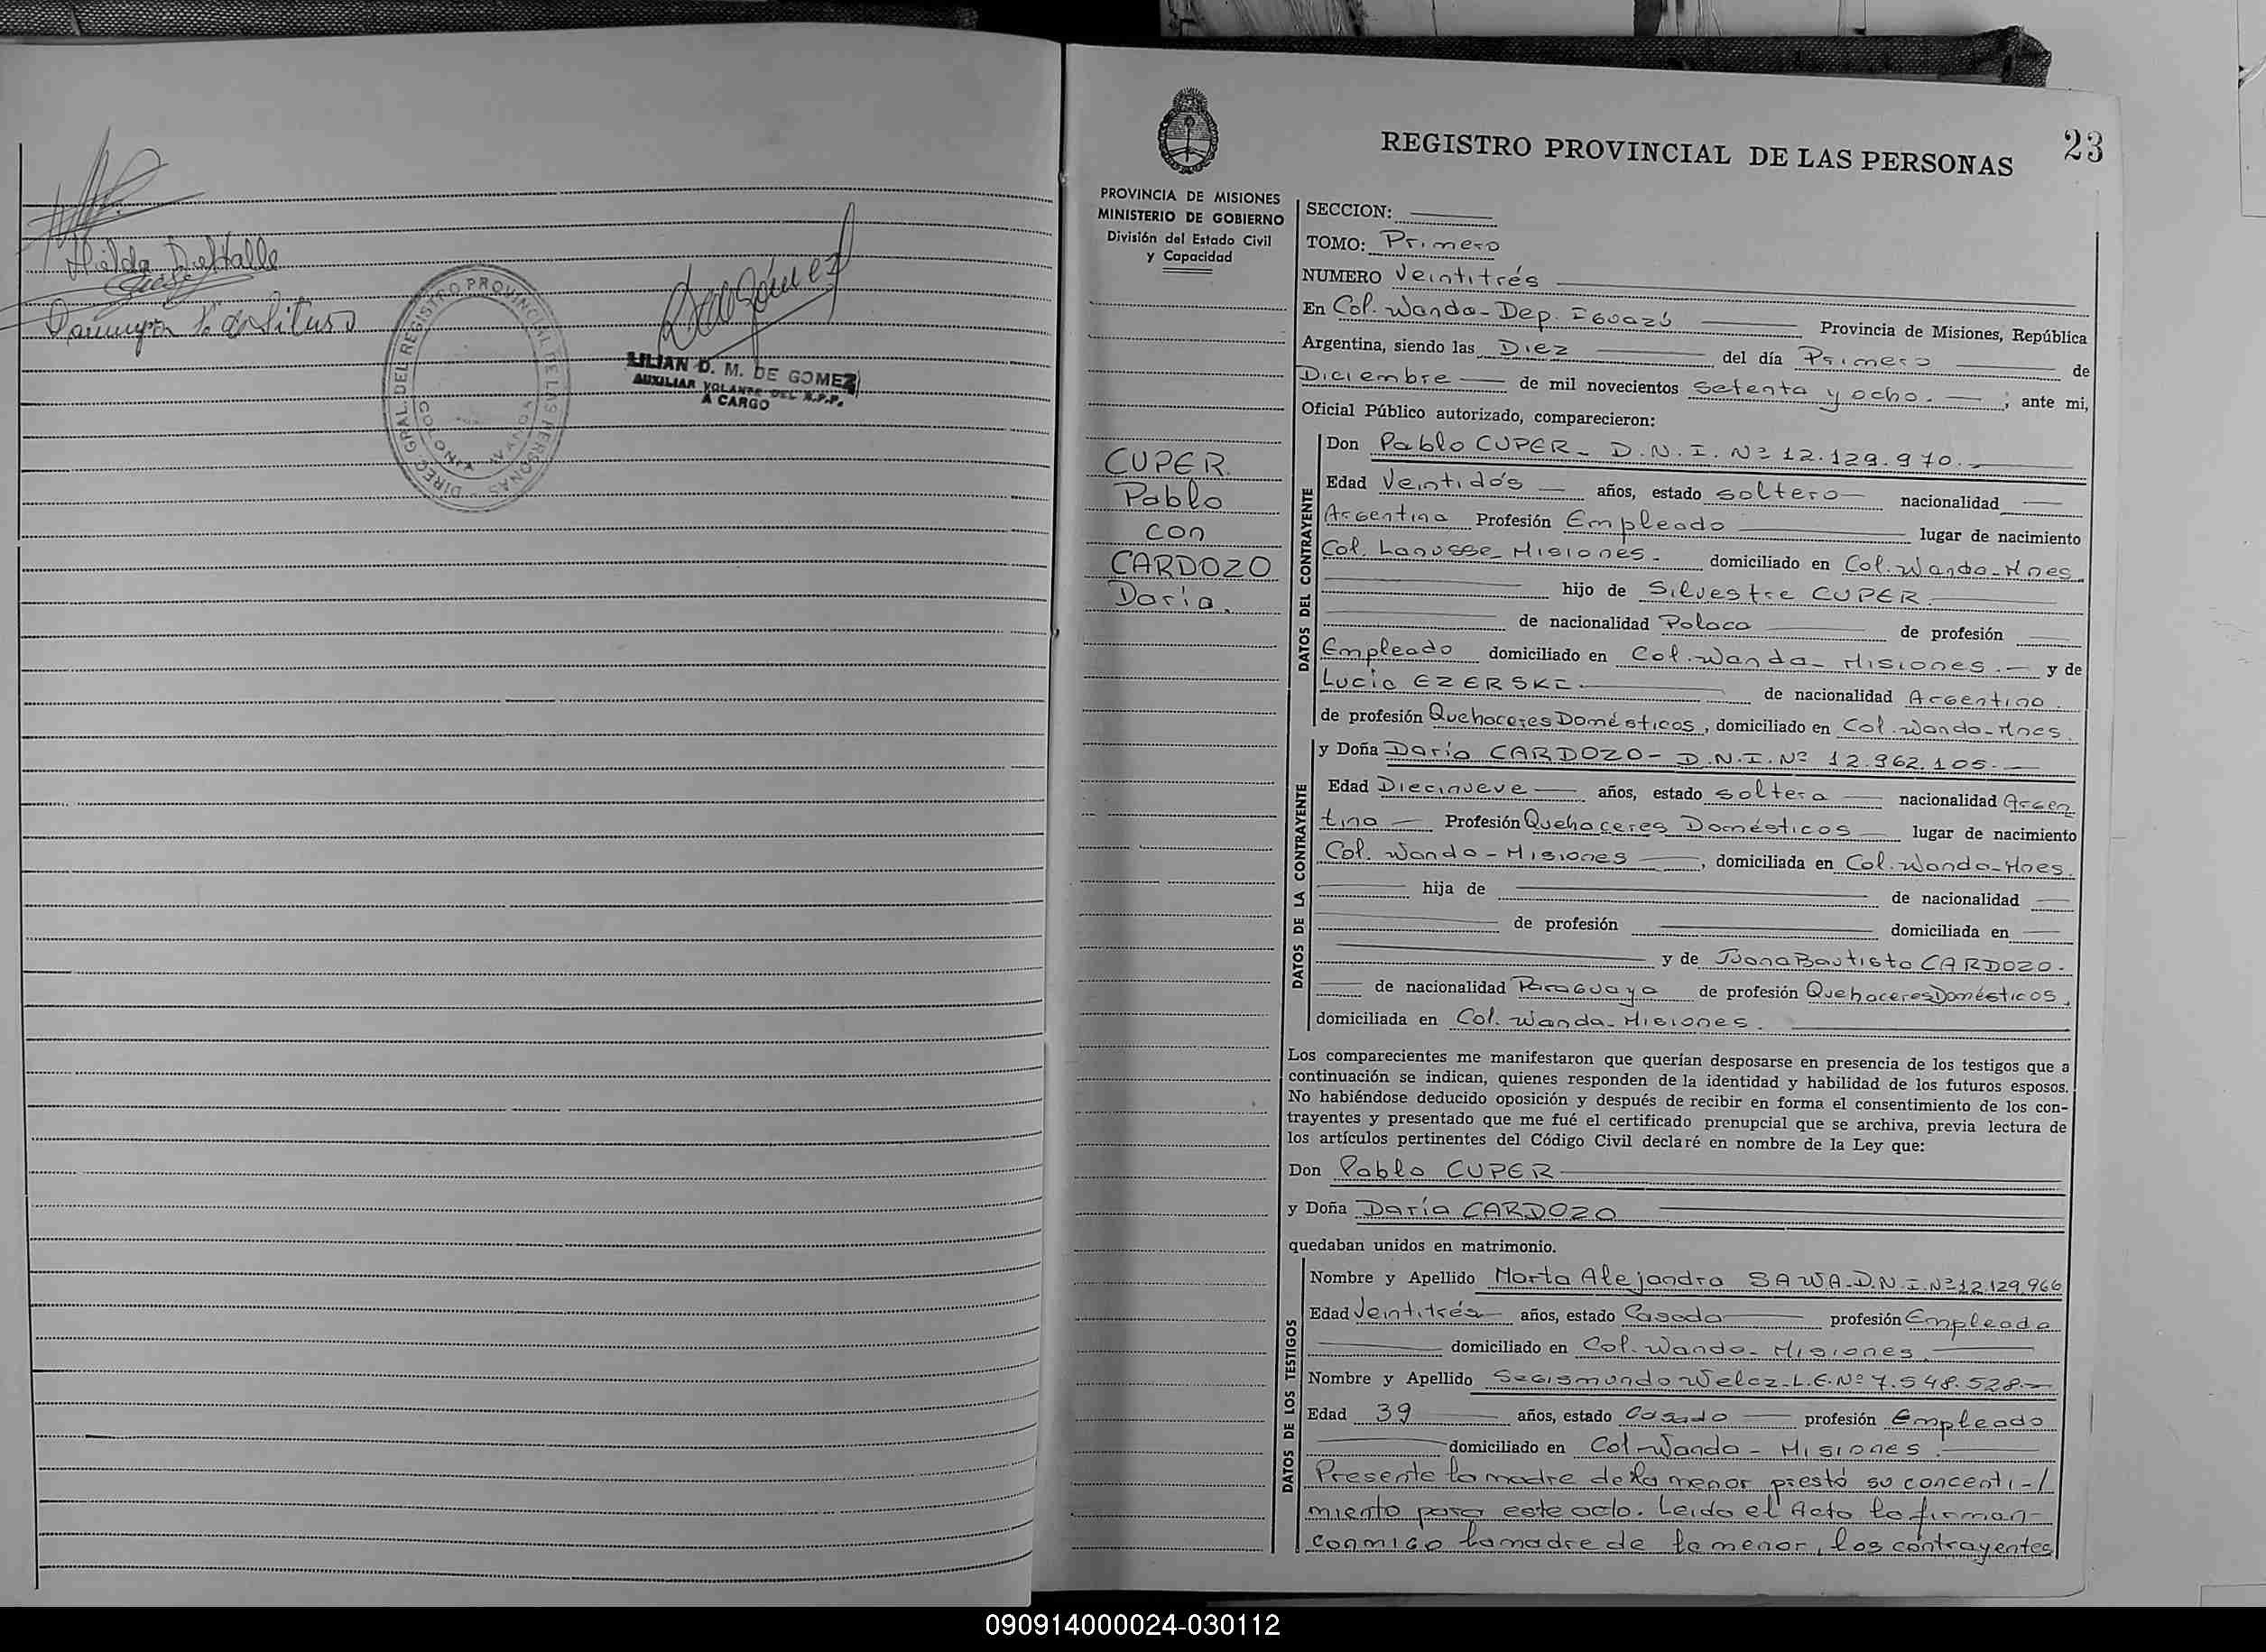 Hilda
DIREC. GRAL. DEL REGISTRO PROVINCIAL DE LAS PERSONAS
LILIAN D. M. DE GOMEZ
AUXILIAR VOLANTE DEL R.P.P.
A CARGO
REGISTRO PROVINCIAL DE LAS PERSONAS
23
PROVINCIA DE MISIONES
MINISTERIO DE GOBIERNO
División del Estado Civil
y Capacidad
CUPER
Pablo
con
CARDOZO
Daría.
SECCION:
TOMO: Primero
NUMERO Veintitrés
En Col. Wanda - Dep. Iguazú Provincia de Misiones, República
Argentina, siendo las Diez del día Primero de
Diciembre de mil novecientos setenta y ocho. ; ante mi,
Oficial Público autorizado, comparecieron:
DATOS DEL CONTRAYENTE
Don Pablo CUPER - D.N.I. Nº 12.129.970.-
Edad Veintidós años, estado soltero nacionalidad
Argentina Profesión Empleado lugar de nacimiento
Col. Lanusse Misiones - domiciliado en Col. Wanda - Mnes.
hijo de Silvestre CUPER.
de nacionalidad Polaca de profesión
Empleado domiciliado en Col. Wanda - Misiones. - y de
Lucia EZERSKI. de nacionalidad Argentina.
de profesión Quehaceres Domésticos, domiciliado en Col. Wanda - Mnes.
DATOS DE LA CONTRAYENTE
y Doña Daría CARDOZO - D.N.I. Nº 12.962.105.-
Edad Diecinueve años, estado soltera nacionalidad Argen
tina Profesión Quehaceres Domésticos lugar de nacimiento
Col. Wanda - Misiones , domiciliada en Col. Wanda - Mnes.
hija de de nacionalidad
de profesión domiciliada en
y de Juana Bautista CARDOZO.
de nacionalidad Paraguaya de profesión Quehaceres Domésticos,
domiciliada en Col. Wanda - Misiones.
Los comparecientes me manifestaron que querían desposarse en presencia de los testigos que a
continuación se indican, quienes responden de la identidad y habilidad de los futuros esposos.
No habiéndose deducido oposición y después de recibir en forma el consentimiento de los con-
trayentes y presentado que me fué el certificado prenupcial que se archiva, previa lectura de
los artículos pertinentes del Código Civil declaré en nombre de la Ley que:
Don Pablo CUPER
y Doña Daría CARDOZO
quedaban unidos en matrimonio.
DATOS DE LOS TESTIGOS
Nombre y Apellido Marta Alejandra SAWA - D.N.I. Nº 12.129.966
Edad Veintitrés años, estado Casada profesión Empleada
domiciliado en Col. Wanda - Misiones
Nombre y Apellido Segismundo Welez - L.E. Nº 7.548.528.-
Edad 39 años, estado Casado profesión Empleado
domiciliado en Col. Wanda - Misiones.
Presente la madre de la menor prestó su concenti-/
miento para este acto. Leído el Acta la firman-
conmigo la madre de la menor, los contrayentes
090914000024-030112